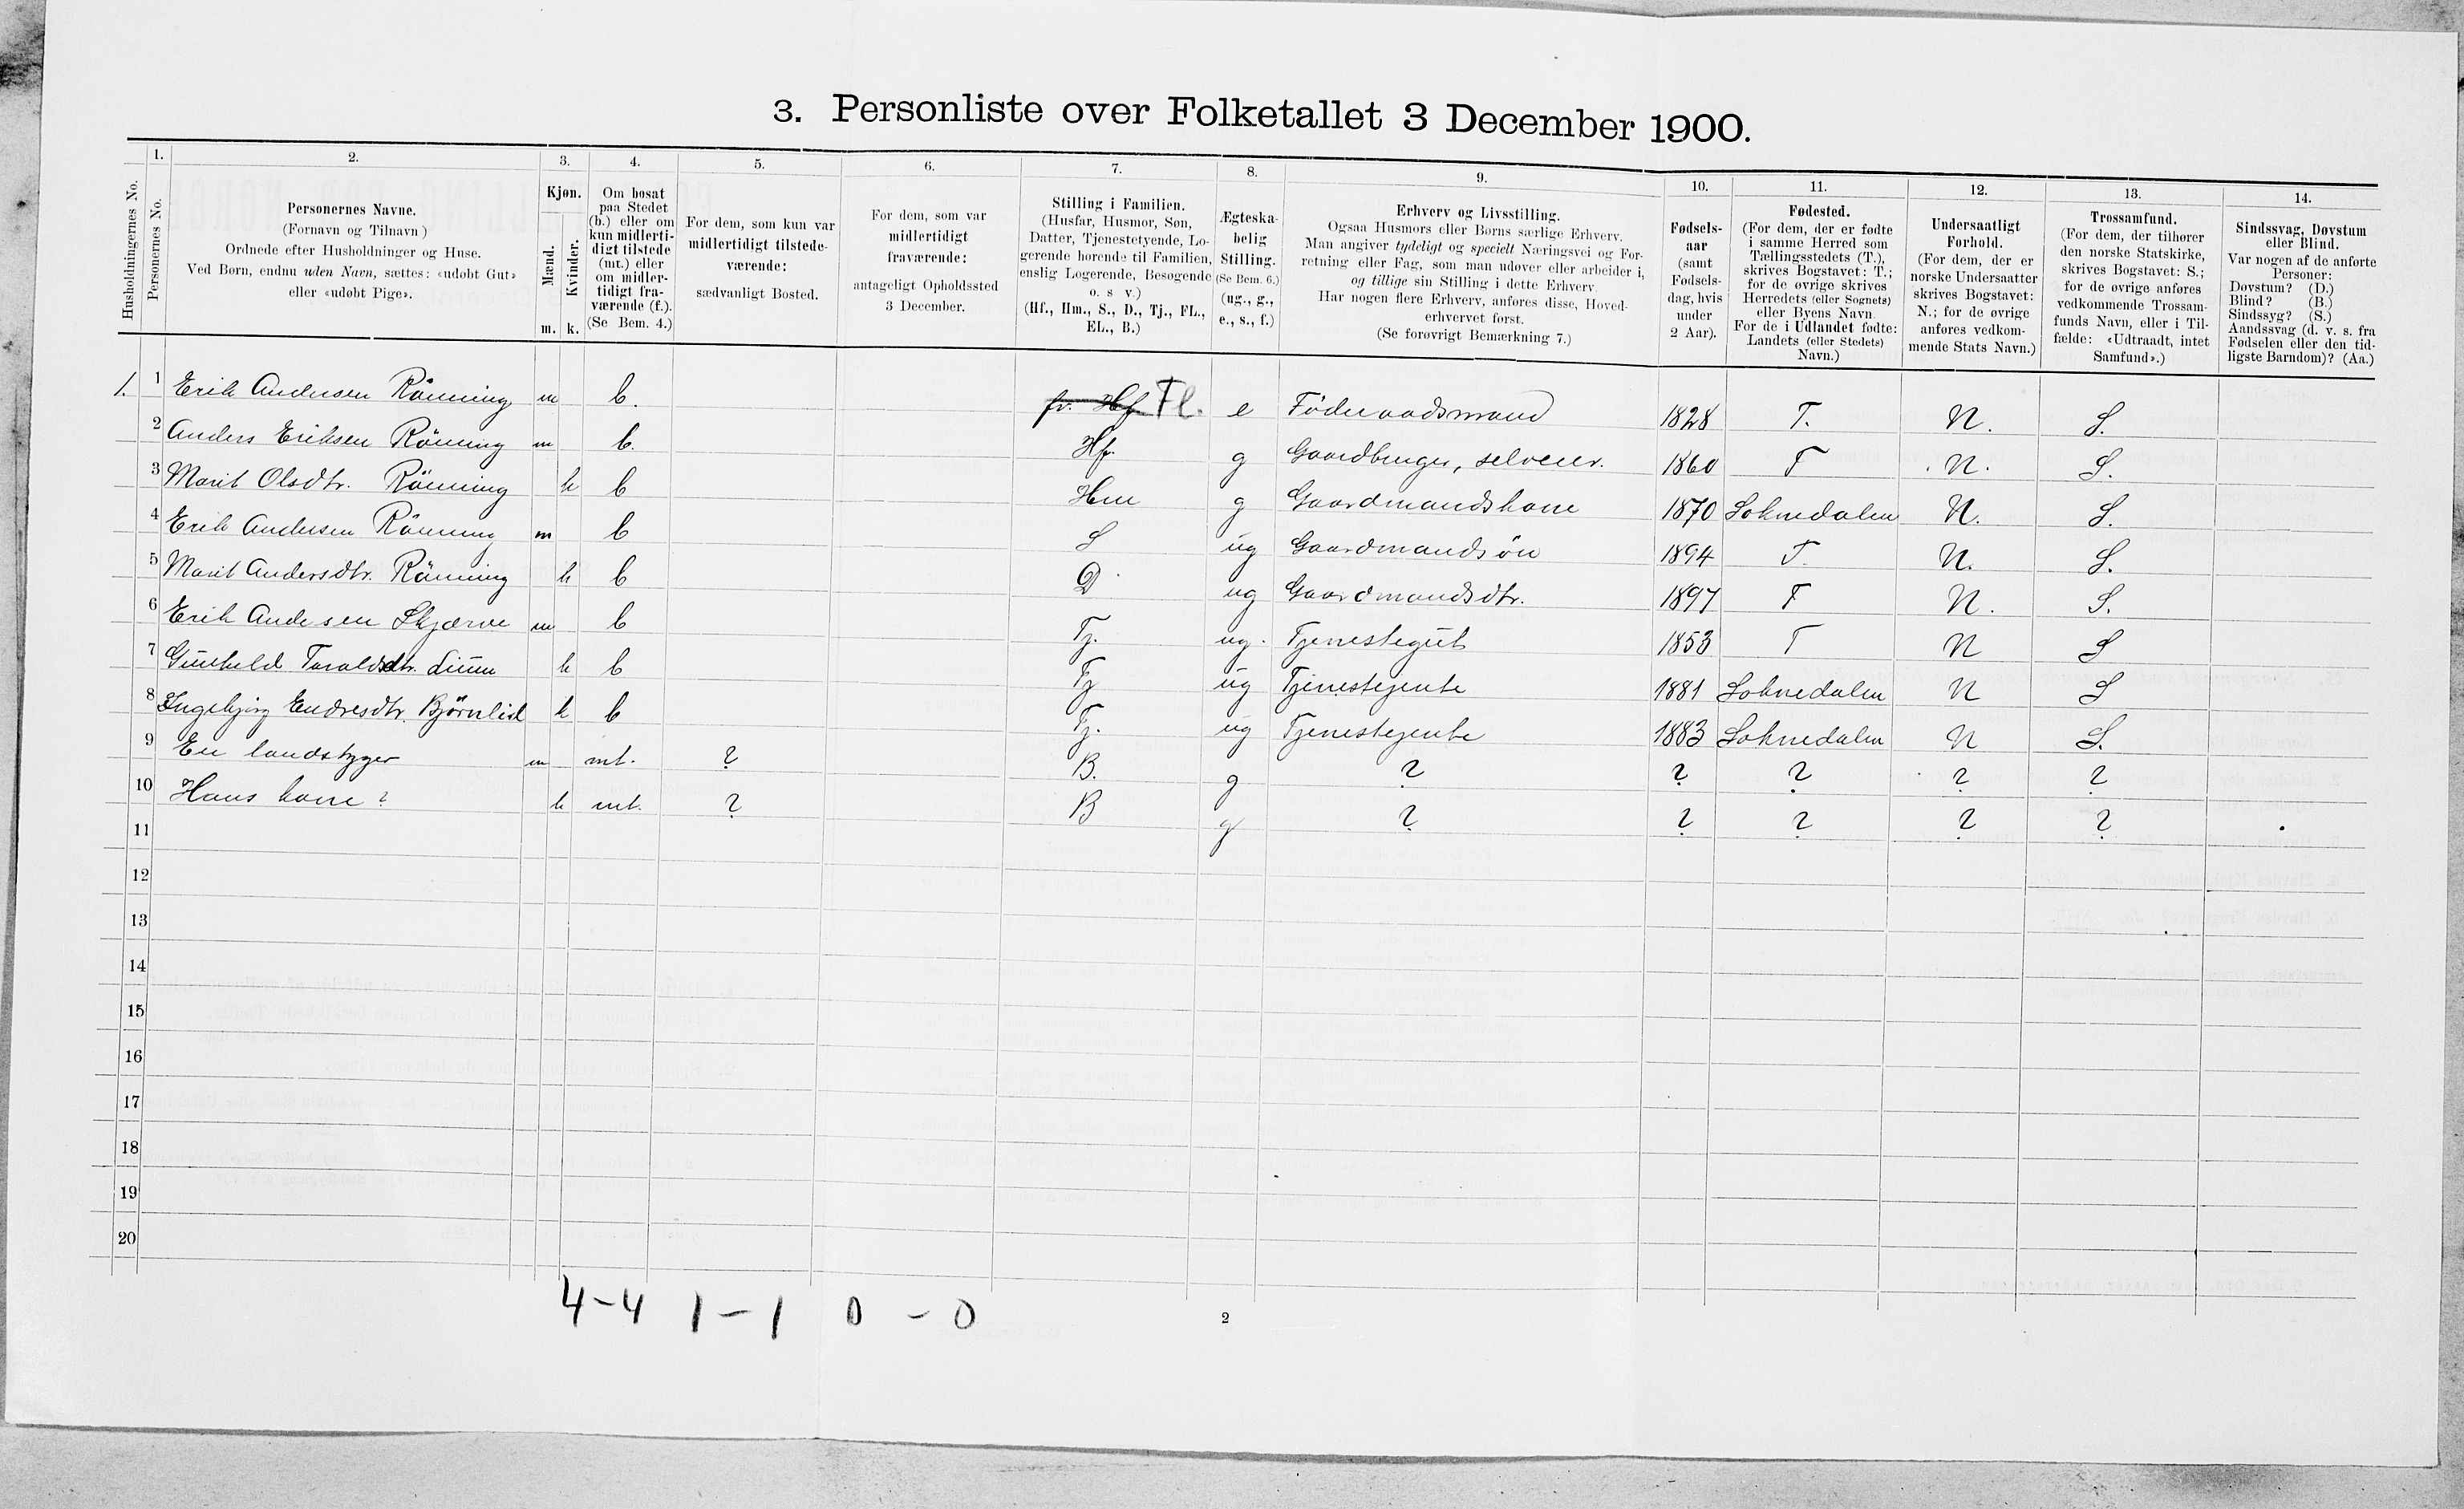 3. Personliste over Folketallet 3 December 1900.
Husholdningernes No.
1. Personernes No.
2. Personernes Navne. (Fornavn og Tilnavn) Ordnede efter Husholdninger og Huse. Ved Børn, endnu uden Navn, sættes: «udøbt Gut» eller «udøbt Pige».
3. Kjøn. Mænd. m. Kvinder. k.
4. Om bosat paa Stedet (b.) eller om kun midlertidigt tilstede (mt.) eller om midlertidigt fraværende (f.). (Se Bem. 4.)
5. For dem, som kun var midlertidigt tilstedeværende: sædvanligt Bosted.
6. For dem, som var midlertidigt fraværende: antageligt Opholdssted 3 December.
7. Stilling i Familien. (Husfar, Husmor, Søn, Datter, Tjenestetyende, Logerende hørende til Familien, enslig Logerende, Besøgende o. s v.) (Hf., Hm., S., D., Tj., FL., EL., B.)
8. Ægteskabelig Stilling. (Se Bem. 6.) (ug., g., e., s., f.)
9. Erhverv og Livsstilling. Ogsaa Husmors eller Børns særlige Erhverv. Man angiver tydeligt og specielt Næringsvei og Forretning eller Fag, som man udøver eller arbeider i, og tillige sin Stilling i dette Erhverv. Har nogen flere Erhverv, anføres disse, Hovederhvervet først. (Se forøvrigt Bemærkning 7.)
10. Fødselsaar (samt Fødselsdag, hvis under 2 Aar).
11. Fødested. (For dem, der er fødte i samme Herred som Tællingsstedets (T.), skrives Bogstavet: T.; for de øvrige skrives Herredets (eller Sognets) eller Byens Navn. For de i Udlandet fødte: Landets (eller Stedets) Navn.)
12. Undersaatligt Forhold. (For dem, der er norske Undersaatter skrives Bogstavet: N.; for de øvrige anføres vedkommende Stats Navn.)
13. Trossamfund. (For dem, der tilhører den norske Statskirke, skrives Bogstavet: S.; for de øvrige anføres vedkommende Trossamfunds Navn, eller i Tilfælde: «Udtraadt, intet Samfund».)
14. Sindssvag, Døvstum eller Blind. Var nogen af de anførte Personer: Døvstum? (D.) Blind? (B.) Sindssyg? (S.) Aandssvag (d. v. s. fra Fødselen eller den tidligste Barndom)? (Aa.)
1. 1 Erik Andersen Rönning m b. fv. Hf. Fl. e Föderaadsmand 1828 T. N. S.
2 Anders Eriksen Rönning m b. Hf. g Gaardbruger, selveier. 1860 T N. S.
3 Marit Olsdtr. Rönning k b Hm g Gaardmandskone 1870 Soknedalen N. S.
4 Erik Andersen Rönning m b S ug Gaardmandsön 1894 T. N. S.
5 Marit Andersdtr. Rönning k b D ug Gaardmandsdtr. 1897 T N. S.
6 Erik Andersen Skjærve m b Tj. ug. Tjenestegut 1853 T N S
7 Gunhild Taraldsdtr. Lium k b Tj ug Tjenestejente 1881 Soknedalen N S
8 Ingebjörg Endresdtr. Björnlid k b Tj. ug Tjenestejente 1883 Soknedalen N S.
9 En landstyger m mt. ? B. g ? ? ? ? ?
10 Hans kone ? k mt. ? B g ? ? ? ? ?
11
12
13
14
15
16
17
18
19
20
4-4 1-1 0-0
2